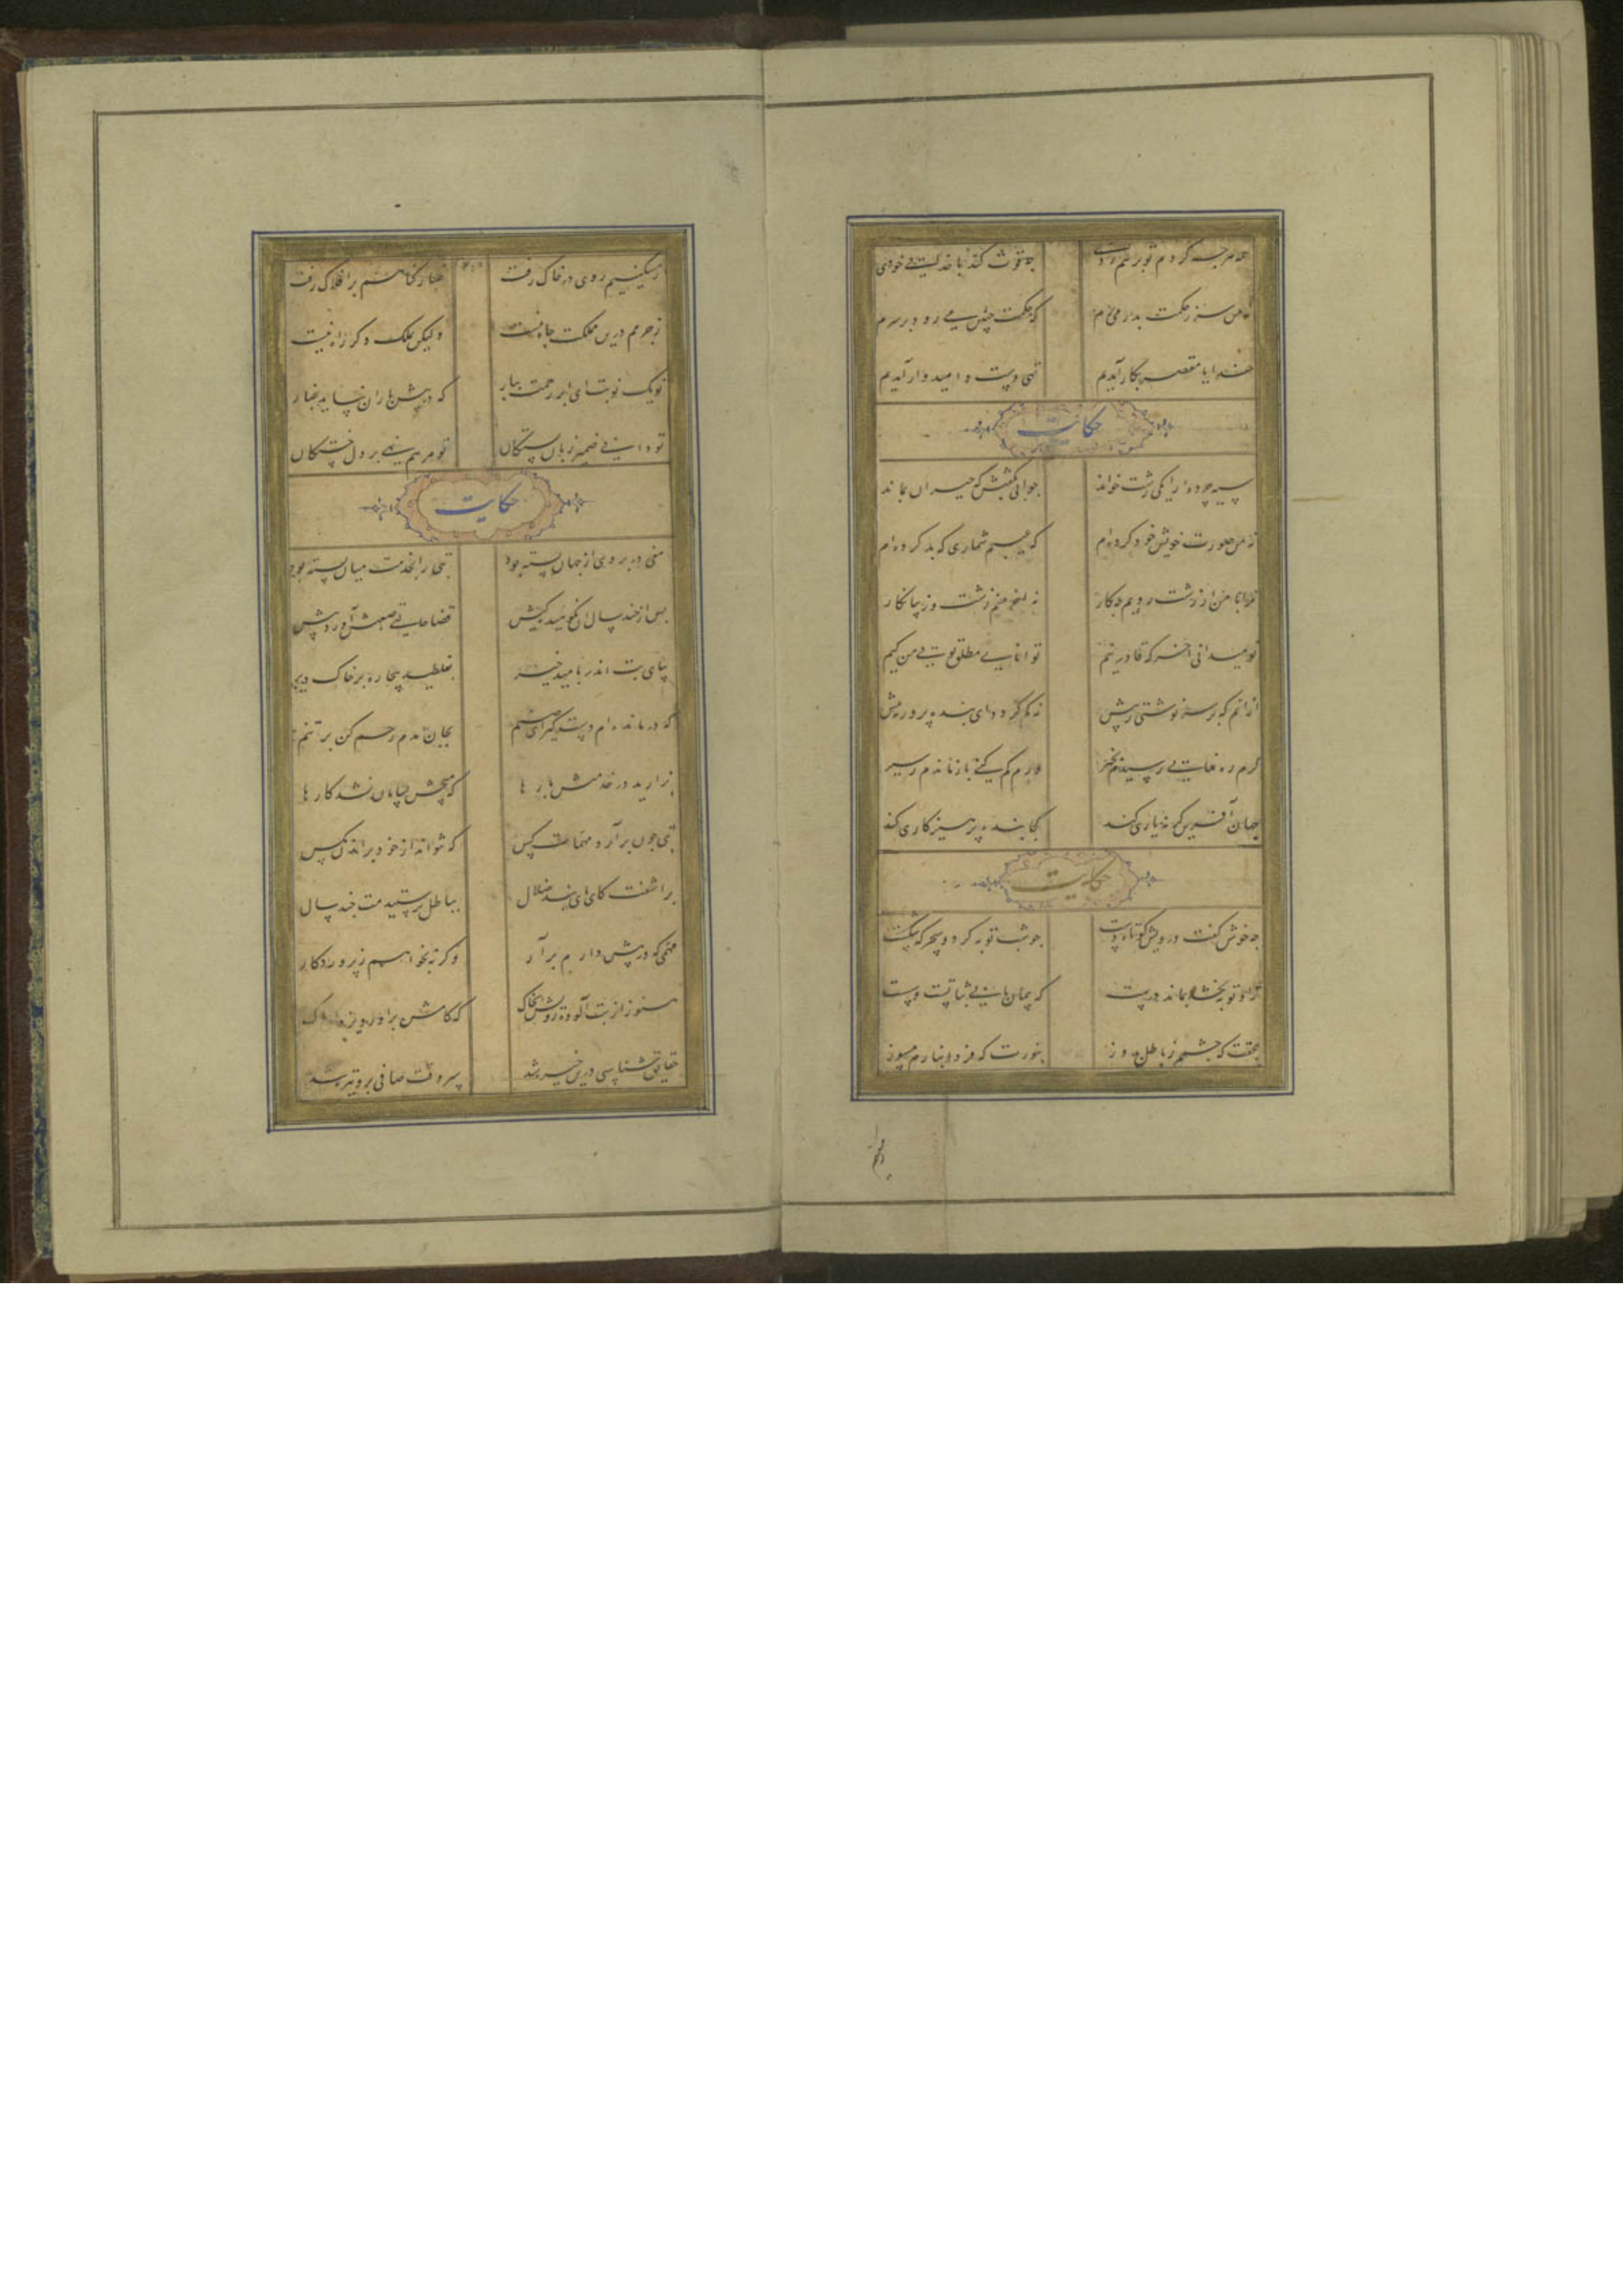 همه هرچه کردم تو بر هم زدی چه قوت کند با خدایی خودی
نه من سر ز حکمت بدر می‌برم که حکمت چنین می‌رود بر سرم
خدایا مقصر بکار آمدیم تهی دست و امیدوار آمدیم
حکایت
سیه چرده را یکی زشت خواند جوابی بگفتش که حیران بماند
نه من صورت خویش خود کرده‌ام که عیبم شماری که بد کرده‌ام
ترا با من ار زشت رویم چه کار نه آخر منم زشت و زیبا نگار
تو میدانی آخر که قادر نیم توانایی مطلق تویی من کیم
ازانم که بر سر نوشتی ز پیش نه کم کردم ای بنده پرور نه بیش
گرم ره نمایی رسیدم بخیر ورم گم کنی باز ماندم ز سیر
جهان آفرین گر نه یاری کند کجا بنده پرهیزکاری کند
حکایت
چه خوش گفت درویش کوتاه دست چو شب توبه کرد و سحرگه شکست
گر او توبه بخشد بماند درست که پیمان ما بی ثباتست و سست
بحقت که چشمم ز باطل بدوز بنورت که فردا بنارم مسوز
ز مسکینیم روی در خاک رفت غبار گناهم بر افلاک رفت
ز جرمم درین مملکت جاه نیست ولیکن بملک دگر راه نیست
تو یک نوبت ای ابر رحمت ببار که در پیش باران نپاید غبار
تو دانی ضمیر زبان بستگان تو مرهم نهی بر دل خستگان
حکایت
مغی در بروی از جهان بسته بود بتی را بخدمت میان بسته بود
پس از چند سال آن نکوهیده کیش قضا حالتی صعبش آورد پیش
بپای بت اندر بامید خیر بغلطید بیچاره بر خاک دیر
که درمانده‌ام دست گیر ای صنم بجان آمدم رحم کن بر تنم
بزارید در خدمتش بارها که هیچش بسامان نشد کارها
بتی چون برآرد مهمات کس که نتواند از خود براند مگس
برآشفت کای پای بند ضلال بباطل پرستیدمت چند سال
مهمی که در پیش دارم برآر وگرنه بخواهم ز پروردگار
هنوز از بت آلوده رویش بخاک که کامش برآورد یزدان پاک
حقایق شناسی درین خیره شد سر وقت صافی برو تیره شد